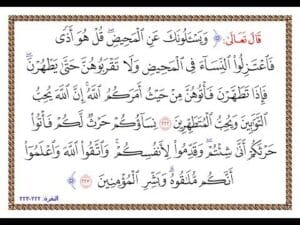 قَالَ تَعَالَىٰ: ﴿ وَيَسْـَٔلُونَكَ عَنِ ٱلْمَحِيضِ ۖ قُلْ هُوَ أَذًى
فَٱعْتَزِلُوا۟ ٱلنِّسَآءَ فِى ٱلْمَحِيضِ ۖ وَلَا تَقْرَبُوهُنَّ حَتَّىٰ يَطْهُرْنَ ۖ
فَإِذَا تَطَهَّرْنَ فَأْتُوهُنَّ مِنْ حَيْثُ أَمَرَكُمُ ٱللَّهُ ۚ إِنَّ ٱللَّهَ يُحِبُّ
ٱلتَّوَّٰبِينَ وَيُحِبُّ ٱلْمُتَطَهِّرِينَ ﴿٢٢٢﴾ نِسَآؤُكُمْ حَرْثٌ لَّكُمْ فَأْتُوا۟
حَرْثَكُمْ أَنَّىٰ شِئْتُمْ ۖ وَقَدِّمُوا۟ لِأَنفُسِكُمْ ۚ وَٱتَّقُوا۟ ٱللَّهَ وَٱعْلَمُوٓا۟
أَنَّكُم مُّلَٰقُوهُ ۗ وَبَشِّرِ ٱلْمُؤْمِنِينَ ﴿٢٢٣﴾ ﴾
البقرة: ٢٢٢-٢٢٣